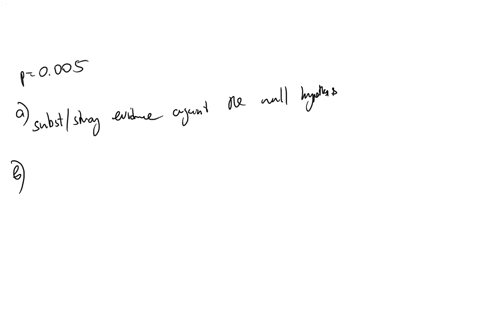 p=0.005
a) subst/strong evidence against the null hypothesis
b)